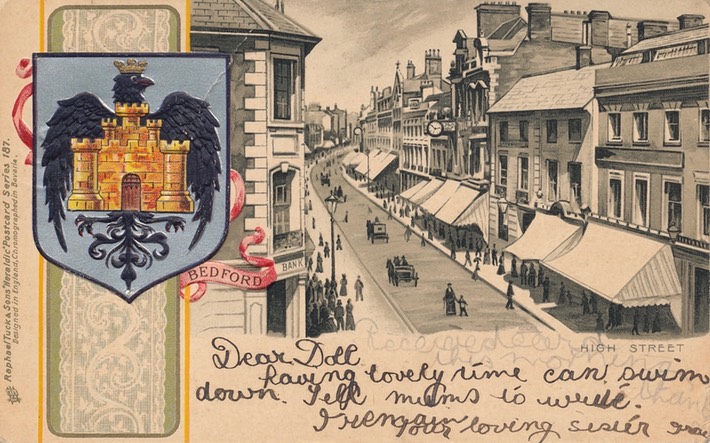 Raphael Tuck & Sons "Heraldic" Postcard Series 187.
Designed in England, Chromographed in Bavaria.
BEDFORD
BANK
HIGH STREET
Received
Dear Doll
having lovely time can swim
down. Tell mums to write.
I remain
your loving sister